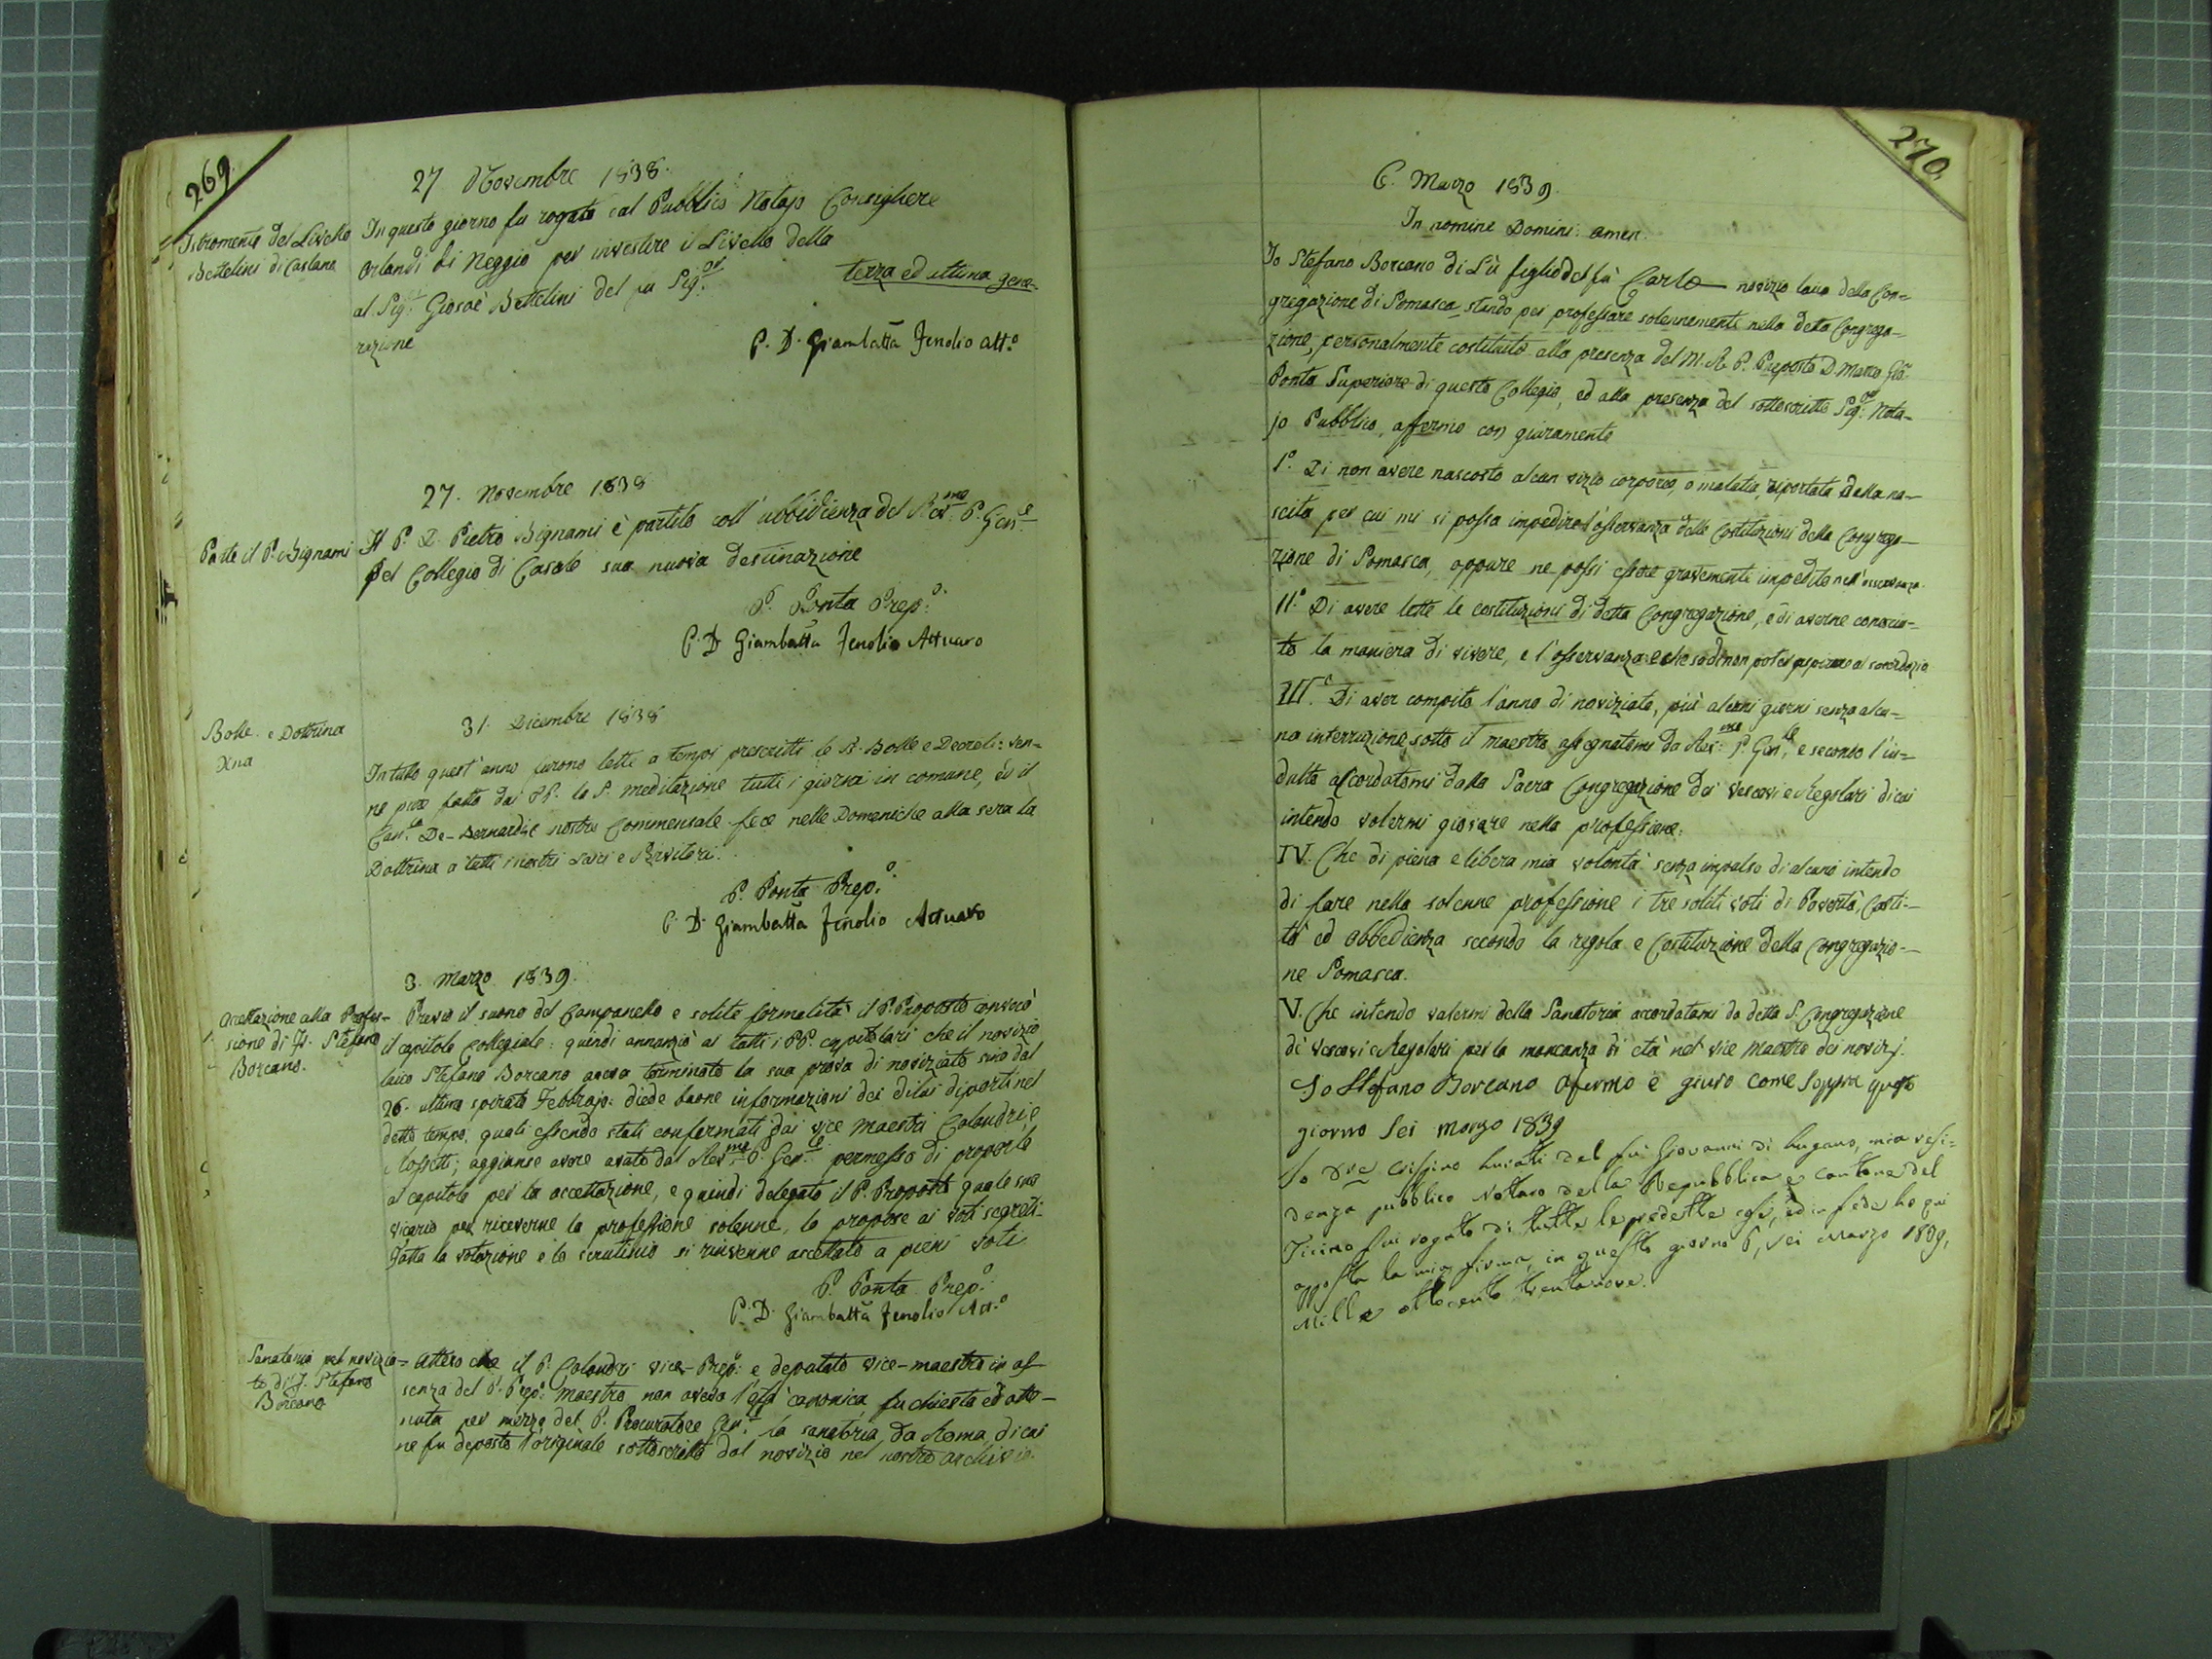 269.
27 Novembre 1838.
Istromento del Livello
Bettelini di Caslano
In questo giorno fu rogato dal Pubblico Notajo Consigliere
Orlandi di Neggio per investire il Livello della
al Sig.r Giosoè Bettelini del fu Sig.or terza ed ultima gene-
razione
P. D. Giambatta Fenolio Att.o
27. Novembre 1838
Parte il P. Bignami
Il P. D. Pietro Bignami è partito coll' ubbidienza del Rev.mo P. Gen.e
pel Collegio di Casale sua nuova destinazione
P. Ponta Prep.o
P. D. Giambatta Fenolio Attuaro
31. Dicembre 1838
Bolle e Dottrina
Xna
In tutto quest'anno furono lette a tempi prescritti le S. Bolle e Decreti: ven-
ne pure fatta dai PP. la S. meditazione tutti i giorni in comune, ed il
Can.co De-Bernardis nostro Commensale fece nelle Domeniche alla sera la
Dottrina a tutti i nostri Laici e Servitori.
P. Ponta Prep.o
P. D. Giambatta Fenolio Attuaro
3. Marzo 1839.
Accettazione alla Profes-
sione di Fr. Stefano
Borcano.
Previo il suono del Campanello e solite formalità il P. Preposto convocò
il capitolo Collegiale: quindi annunziò ai tutti i PP. capitolari che il novizio
laico Stefano Borcano aveva terminato la sua prova di noviziato sino dal
26. ultimo spirato Febbrajo: diede buone informazioni dei di lui diporti nel
detto tempo, quali essendo stati confermati dai vice Maestri Calandri, e
Rossetti; aggiunse avere avuto dal Rev.mo P. Gen.le permesso di proporlo
al capitolo per la accettazione, e quindi delegato il P. Preposto quale suo
vicario per riceverne la professione solenne, lo propose ai voti segreti.
Fatta la votazione e lo scrutinio si rinvenne accettato a pieni voti
P. Ponta Prep.o
P. D. Giambatta Fenolio Att.o
Sanatoria pel novizia-
to di F. Stefano
Borcano
Atteso che il P. Calandri vice-Prep.o e deputato vice-maestro in as-
senza del P. Prep.o Maestro non aveva l'età canonica fu chiesta ed otte-
nuta per mezzo del P. Procuratore Gen.e la sanatoria da Roma, di cui
ne fu deposto l'originale sottoscritto dal novizio nel nostro archivio.
270.
6. Marzo 1839.
In nomine Domini: amen.
Io Stefano Borcano di Lù figlio del fù Carlo novizio laico della Con-
gregazione di Somasca, stando per professare solennemente nella detta Congrega-
zione, personalmente costituito alla presenza del M. R. P. Preposto D. Marco Gio:
Ponta Superiore di questo Collegio, ed alla presenza del sottoscritto Sig.or Nota-
jo Pubblico, affermo con giuramento
I.o Di non avere nascosto alcun vizio corporeo, o malatia, riportata dalla na-
scita per cui mi si possa impedire l'osservanza delle Costituzioni della Congrega-
zione di Somasca, oppure ne possi essere gravemente impedito nell'osservanza.
II.o Di avere lette le costituzioni di detta Congregazione, e di averne conosciu-
to la maniera di vivere, e l'osservanza e che so di non poter aspirare al sacerdozio
III.o Di aver compito l'anno di noviziato, più alcuni giorni senza alcu-
na interruzione, sotto il maestro assegnatomi da Rev.mo P. Gen.le, e secondo l'in-
dulto accordatomi dalla Sacra Congregazione dei Vescovi e Regolari di cui
intendo volermi giovare nella professione.
IV. Che di piena e libera mia volontà senza impulso di alcuno intendo
di fare nella solenne professione i trè soliti voti di Povertà, Casti-
tà ed Obbedienza secondo la regola e Costituzione della Congregazio-
ne Somasca.
V. Che intendo valermi della Sanatoria accordatami da detta S. Congregazione
di Vescovi e Regolari per la mancanza di età nel vice Maestro dei novizj.
Io Stefano Borcano afermo e giuro come soppra questo
giorno Sei Marzo 1839
Io Crispino Luiati del fu Giovanni di Lugano, mia resi-
denza pubblico Nottaro della Repubblica e Cantone del
Ticino fui rogato di tutte le predette cose, ed in fede ho qui
apposta la mia firma, in questo giorno 6, sei Marzo 1839,
Mille ottocento trentanove.